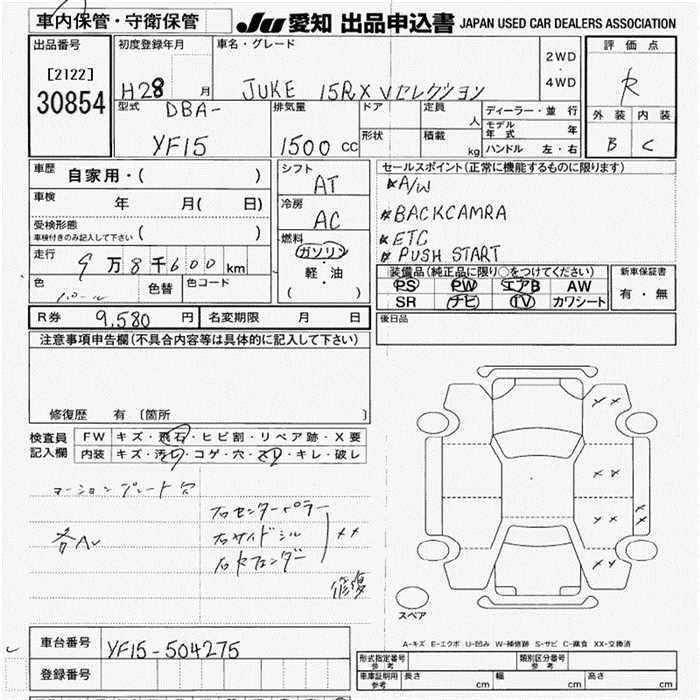 車内保管・守衛保管
JU 愛知 出品申込書 JAPAN USED CAR DEALERS ASSOCIATION
出品番号
[2122]
30854
初度登録年月
H28 月
車名・グレード
JUKE 15RX Vセレクション
2WD
・
4WD
評価点
R
外装 内装
B C
型式
DBA-
YF15
排気量
1500 cc
ドア
形状
定員
人
積載
kg
ディーラー・並行
モデル年式 年
ハンドル 左・右
車歴 自家用・( )
車検 年 月( 日)
受検形態
車検付きのみ記入して下さい ( )
走行 9万8千600 km
色 パール 色替 色コード
シフト
AT
冷房
AC
燃料
ガソリン
軽・油
( )
セールスポイント(正常に機能するものに限ります)
A/W
BACKCAMRA
ETC
PUSH START
装備品(純正品に限り○をつけてください)
PS PW エアB AW
SR ナビ TV カワシート
新車保証書
有・無
R券 9,580 円 名変期限 月 日
後日品
注意事項申告欄(不具合内容等は具体的に記入して下さい)
修復歴 有 〔箇所 〕
検査員
記入欄
FW キズ・飛石・ヒビ割・リペア跡・X要
内装 キズ・汚れ・コゲ・穴・スレ・キレ・破レ
各A
右センターピラー
右サイドシル
右Rフェンダー
XX
修復
XX
XX
XX
XX
XX
スペア
A-キズ E-エクボ U-凹み W-補修跡 S-サビ C-腐食 XX-交換済
車台番号 YF15-504275
登録番号
形式指定番号
参考
類別区分番号
参考
車庫証明用
参考
長さ cm 幅 cm 高さ cm